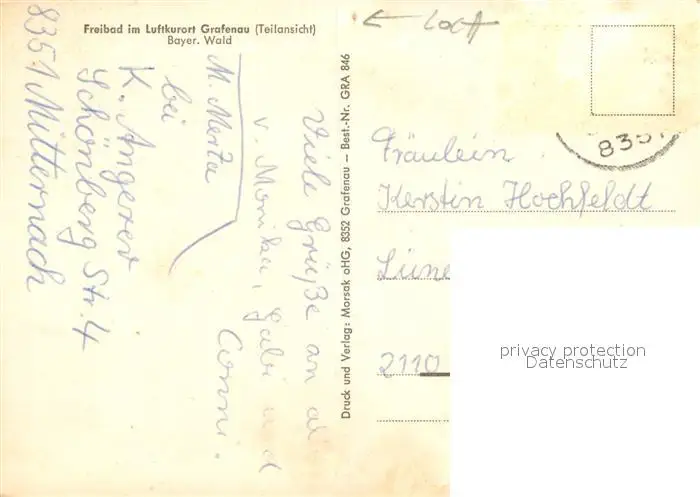 Freibad im Luftkurort Grafenau (Teilansicht)
Bayer. Wald
Viele Grüße an
v. Monika, Gabi und
Conni.
M. Merta
bei
K. Angerer
Schönberg Str. 4
8351 Mitternach
Druck und Verlag: Morsak oHG, 8352 Grafenau – Best.-Nr. GRA 846
835
Fräulein
Kerstin Hochfeldt
Lüne
2110
privacy protection
Datenschutz